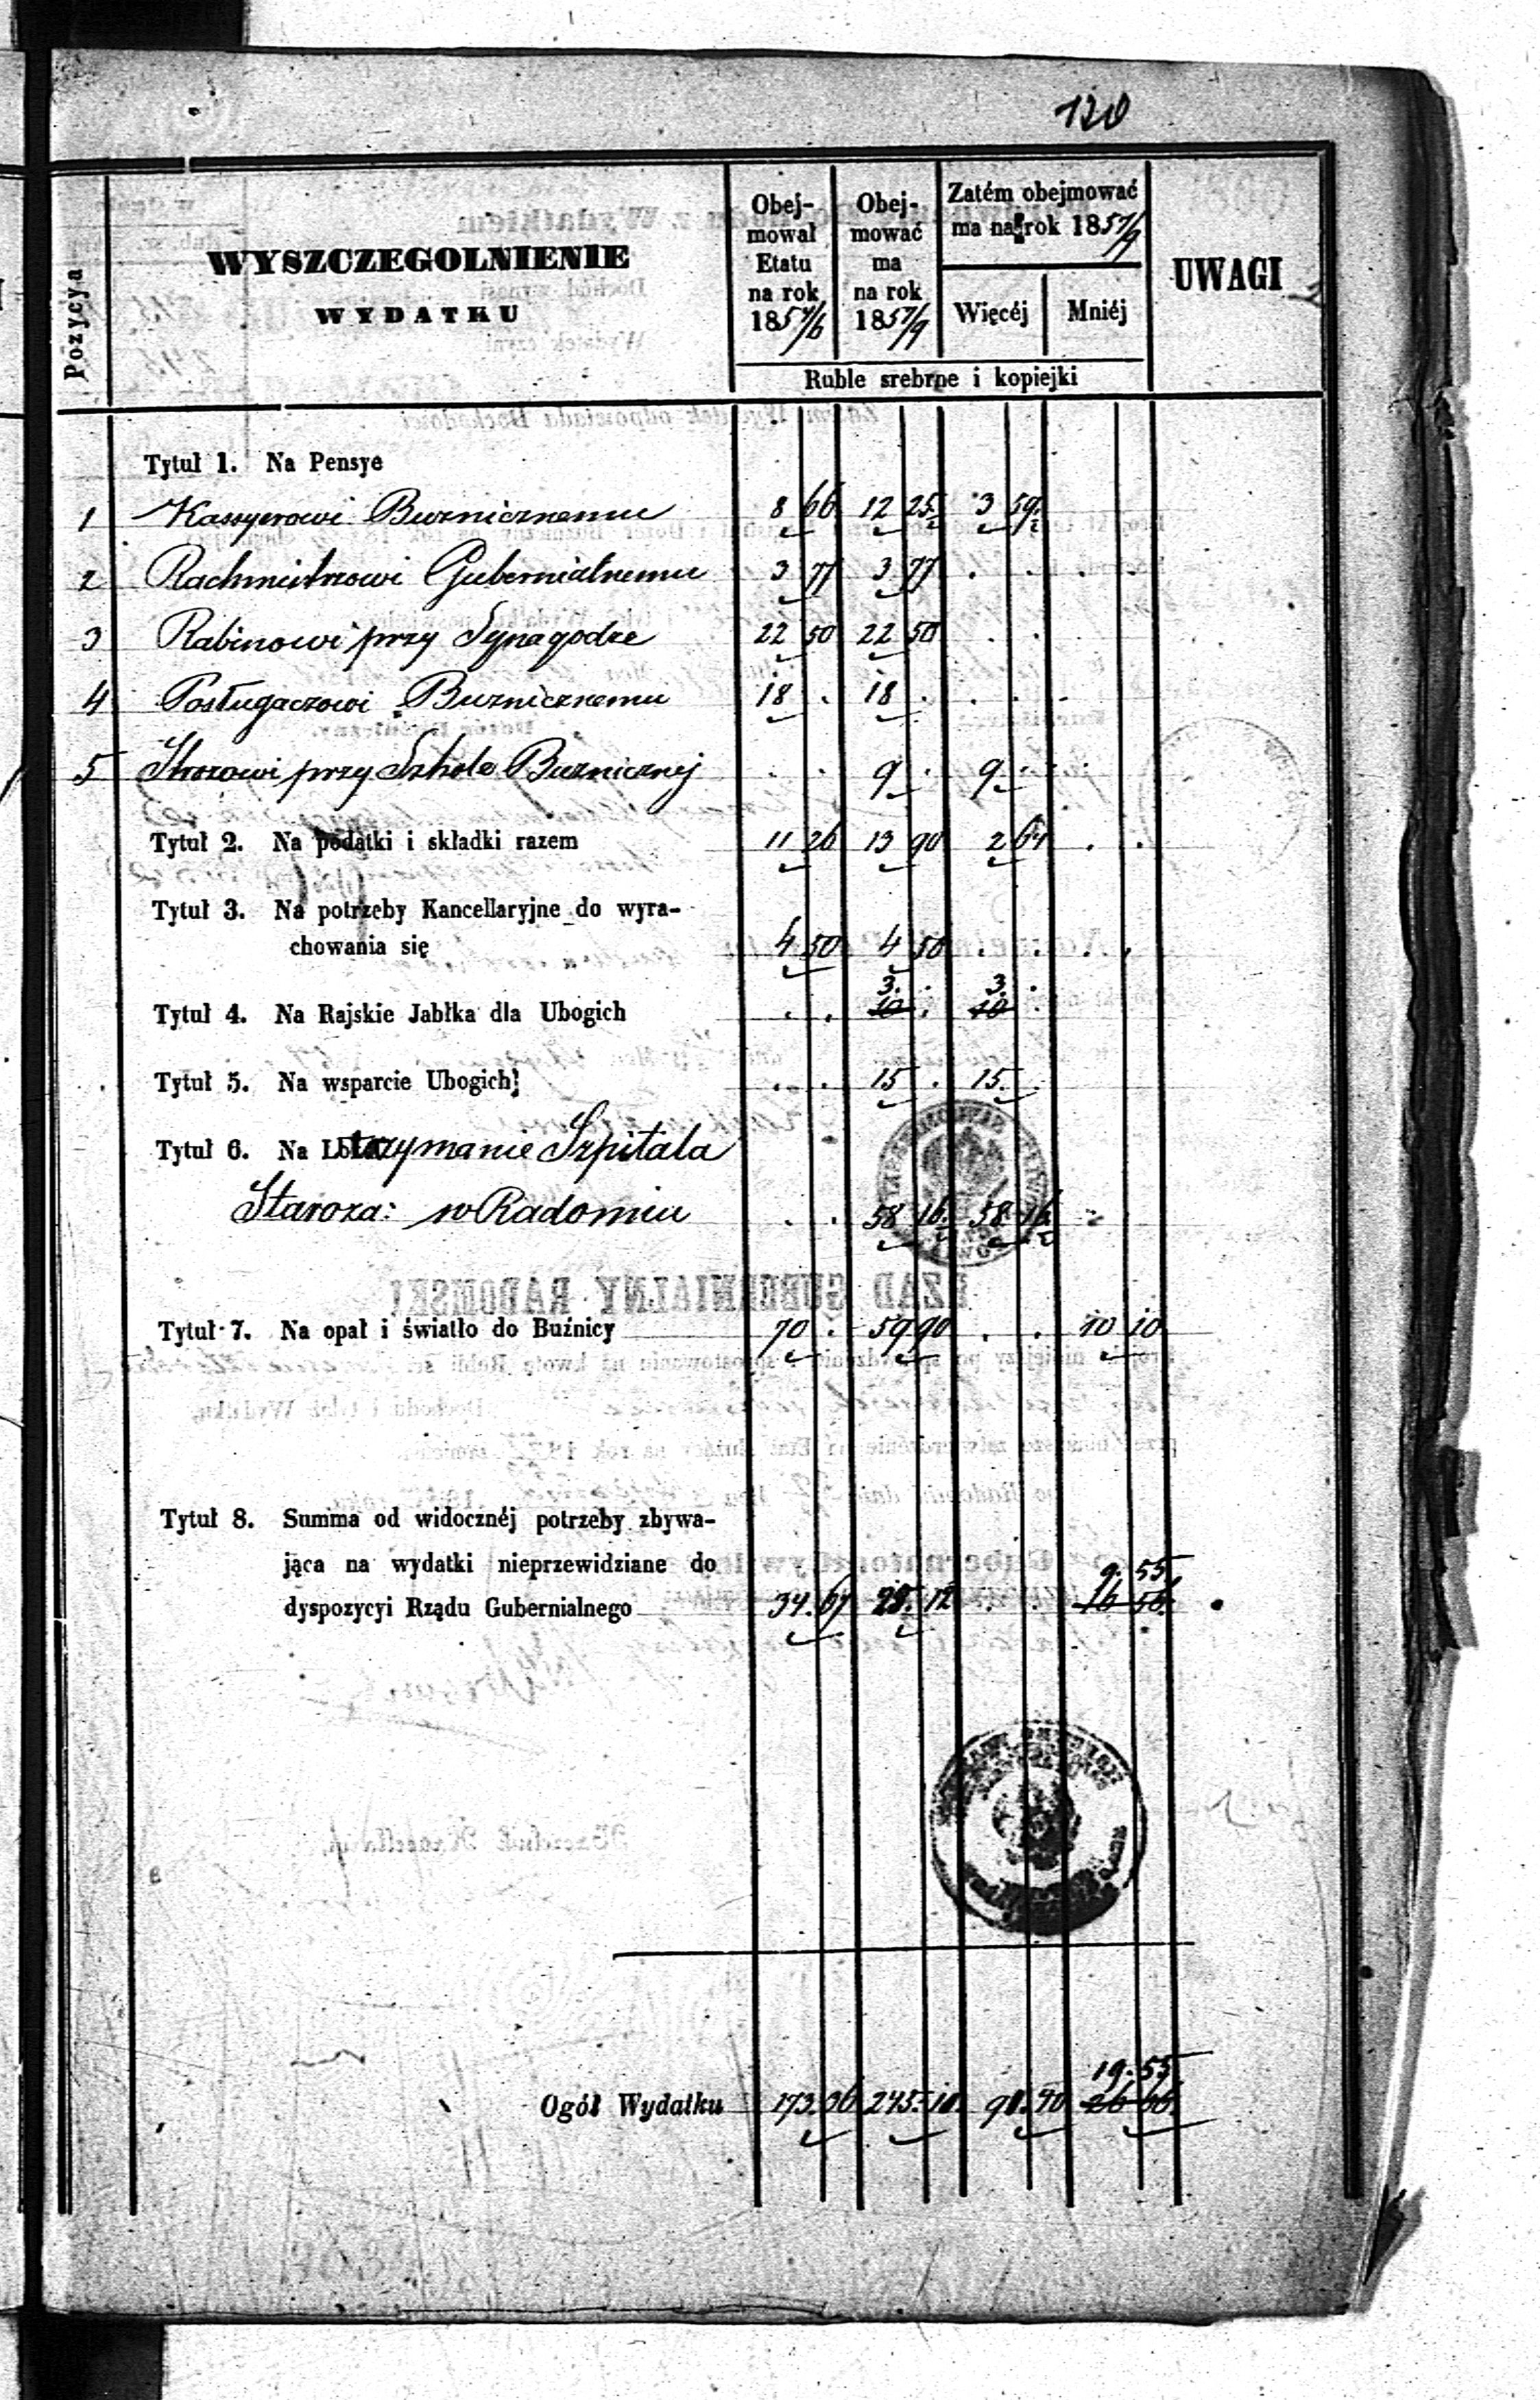 120
Pozycya
WYSZCZEGOLNIENIE
WYDATKU
Obej-
mował
Etatu
na rok
185 4/6
Obej-
mować
ma
na rok
185 7/9
Zatém obejmować
ma na rok 185 7/9
Więcéj Mniéj
Ruble srebrne i kopiejki
UWAGI
Tytuł 1. Na Pensye
1 Kassyerowi Buznicznemu 8 66 12 25 3 59
2 Rachmistrzowi Gubernialnemu 3 77 3 77 . . . .
3 Rabinowi przy Synagodze 22 50 22 50 . .
4 Posługaczowi Buznicznemu 18 . 18 . . . .
5 Stróżowi przy Szkole Buznicznej . . 9 . 9 . . .
Tytuł 2. Na podatki i składki razem 11 26 13 90 2 64 . .
Tytuł 3. Na potrzeby Kancellaryjne do wyra-
chowania się 4 50 4 50 . . . .
3. . 3. .
Tytuł 4. Na Rajskie Jabłka dla Ubogich . . 10 . 10 .
Tytuł 5. Na wsparcie Ubogich . . 15 . 15 .
Tytuł 6. Na utrzymanie Szpitala
Staroza: w Radomiu . . 58 16 58 16
Tytuł 7. Na opał i światło do Buźnicy 70 . 59 90 . . 10 10
Tytuł 8. Summa od widocznéj potrzeby zbywa-
jąca na wydatki nieprzewidziane do 9. 55
dyspozycyi Rządu Gubernialnego 34. 67 25. 12 . . 16 56
19. 55
Ogół Wydatku 173. 36 245. 10. 91. 40 26 66